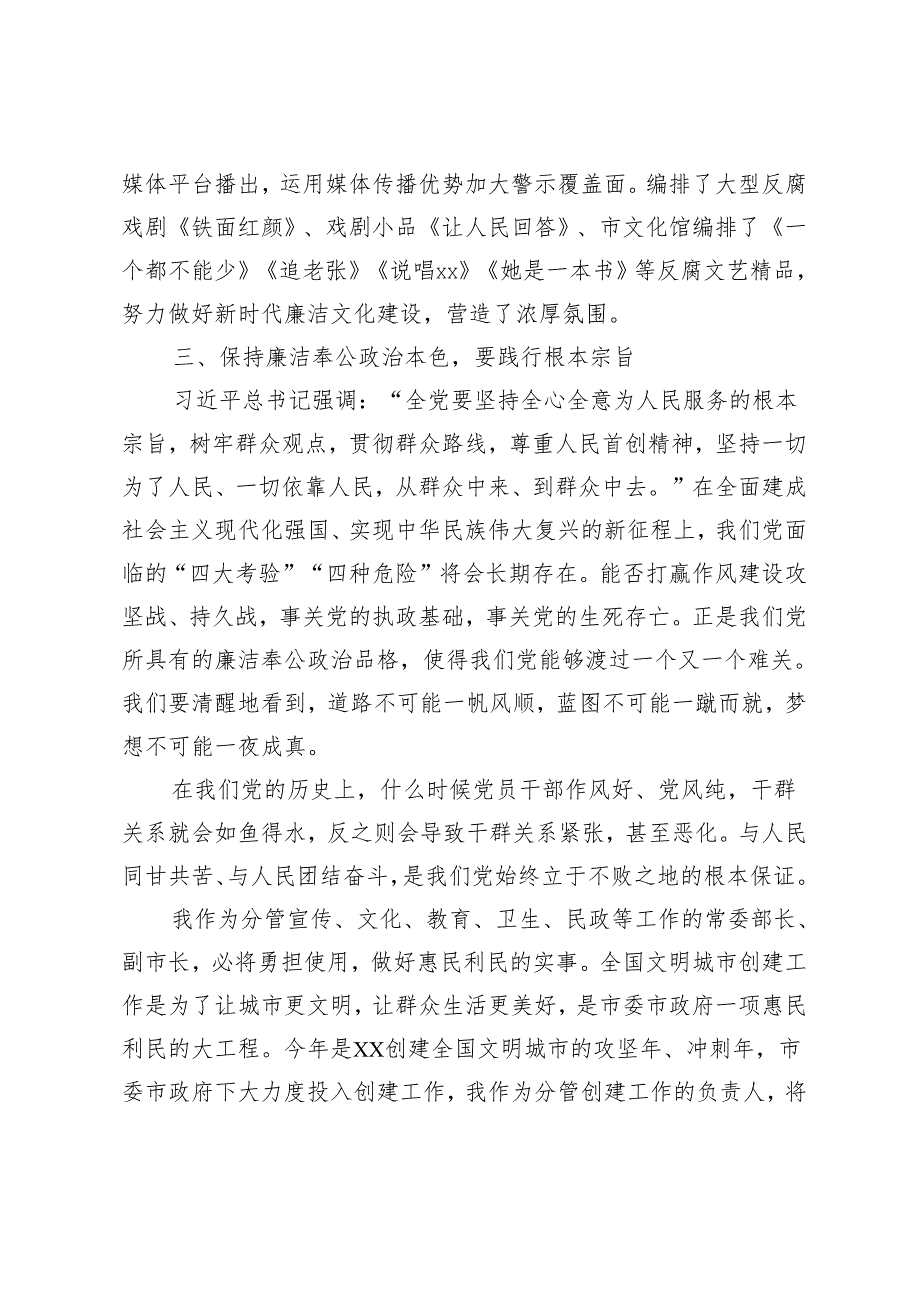 媒体平台播出，运用媒体传播优势加大警示覆盖面。编排了大型反腐
戏剧《铁面红颜》、戏剧小品《让人民回答》、市文化馆编排了《一
个都不能少》《追老张》《说唱xx》《她是一本书》等反腐文艺精品，
努力做好新时代廉洁文化建设，营造了浓厚氛围。
三、保持廉洁奉公政治本色，要践行根本宗旨
习近平总书记强调：“全党要坚持全心全意为人民服务的根本
宗旨，树牢群众观点，贯彻群众路线，尊重人民首创精神，坚持一切
为了人民、一切依靠人民，从群众中来、到群众中去。”在全面建成
社会主义现代化强国、实现中华民族伟大复兴的新征程上，我们党面
临的“四大考验”“四种危险”将会长期存在。能否打赢作风建设攻
坚战、持久战，事关党的执政基础，事关党的生死存亡。正是我们党
所具有的廉洁奉公政治品格，使得我们党能够渡过一个又一个难关。
我们要清醒地看到，道路不可能一帆风顺，蓝图不可能一蹴而就，梦
想不可能一夜成真。
在我们党的历史上，什么时候党员干部作风好、党风纯，干群
关系就会如鱼得水，反之则会导致干群关系紧张，甚至恶化。与人民
同甘共苦、与人民团结奋斗，是我们党始终立于不败之地的根本保证。
我作为分管宣传、文化、教育、卫生、民政等工作的常委部长、
副市长，必将勇担使用，做好惠民利民的实事。全国文明城市创建工
作是为了让城市更文明，让群众生活更美好，是市委市政府一项惠民
利民的大工程。今年是XX创建全国文明城市的攻坚年、冲刺年，市
委市政府下大力度投入创建工作，我作为分管创建工作的负责人，将